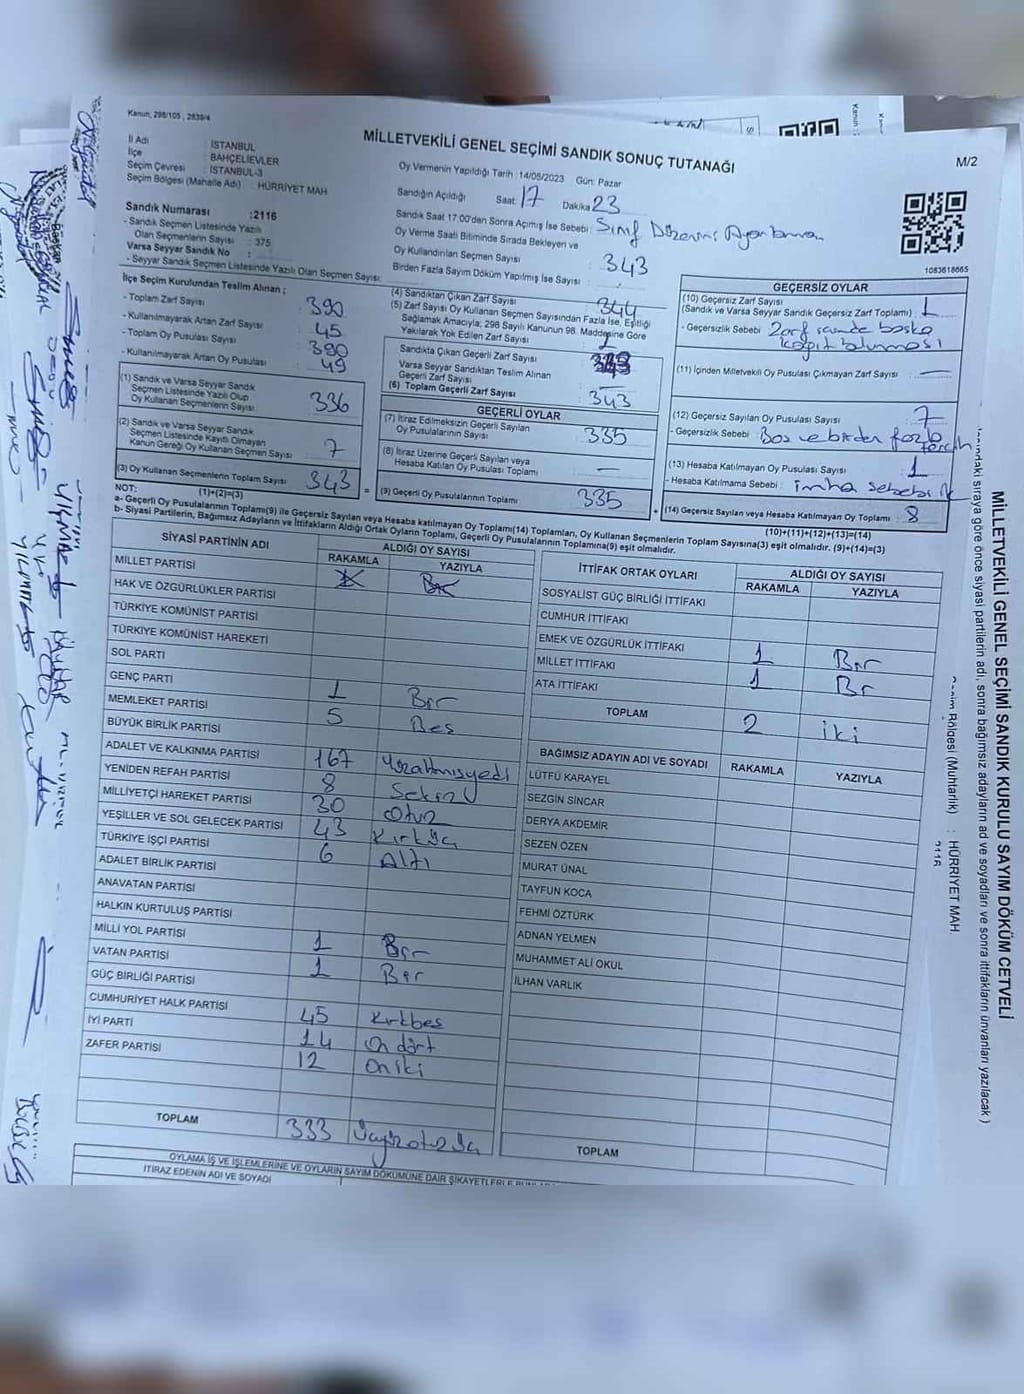 Kanun: 298/105 , 2839/4
MİLLETVEKİLİ GENEL SEÇİMİ SANDIK SONUÇ TUTANAĞI
M/2
İl Adı : İSTANBUL
İlçe : BAHÇELİEVLER
Seçim Çevresi : İSTANBUL-3
Seçim Bölgesi (Mahalle Adı) : HÜRRİYET MAH
Oy Vermenin Yapıldığı Tarih :14/05/2023 Gün: Pazar
Sandığın Açıldığı Saat: 17 Dakika 23
Sandık Saat 17:00'den Sonra Açılmış İse Sebebi : Sınıf Düzenini Ayarlanması
Oy Verme Saati Bitiminde Sırada Bekleyen ve
Oy Kullandırılan Seçmen Sayısı : 343
Birden Fazla Sayım Döküm Yapılmış İse Sayısı :
Sandık Numarası :2116
- Sandık Seçmen Listesinde Yazılı
Olan Seçmenlerin Sayısı : 375
Varsa Seyyar Sandık No :
- Seyyar Sandık Seçmen Listesinde Yazılı Olan Seçmen Sayısı:
1083618665
İlçe Seçim Kurulundan Teslim Alınan ;
- Toplam Zarf Sayısı : 390
- Kullanılmayarak Artan Zarf Sayısı : 45
- Toplam Oy Pusulası Sayısı : 390
- Kullanılmayarak Artan Oy Pusulası : 49
(1) Sandık ve Varsa Seyyar Sandık
Seçmen Listesinde Yazılı Olup
Oy Kullanan Seçmenlerin Sayısı 336
(2) Sandık ve Varsa Seyyar Sandık
Seçmen Listesinde Kayıtlı Olmayan
Kanun Gereği Oy Kullanan Seçmen Sayısı 7
(3) Oy Kullanan Seçmenlerin Toplam Sayısı 343
(1)+(2)=(3)
(4) Sandıktan Çıkan Zarf Sayısı 344
(5) Zarf Sayısı Oy Kullanan Seçmen Sayısından Fazla İse, Eşitliği
Sağlamak Amacıyla; 298 Sayılı Kanunun 98. Maddesine Göre
Yakılarak Yok Edilen Zarf Sayısı : 1
Sandıkta Çıkan Geçerli Zarf Sayısı
Varsa Seyyar Sandıktan Teslim Alınan
Geçerli Zarf Sayısı
(6) Toplam Geçerli Zarf Sayısı 343
GEÇERLİ OYLAR
(7) İtiraz Edilmeksizin Geçerli Sayılan
Oy Pusulalarının Sayısı 335
(8) İtiraz Üzerine Geçerli Sayılan veya
Hesaba Katılan Oy Pusulası Toplamı —
(9) Geçerli Oy Pusulalarının Toplamı 335
GEÇERSİZ OYLAR
(10) Geçersiz Zarf Sayısı
(Sandık ve Varsa Seyyar Sandık Geçersiz Zarf Toplamı) : 1
- Geçersizlik Sebebi : Zarf içinde başka
kağıt bulunması
(11) İçinden Milletvekili Oy Pusulası Çıkmayan Zarf Sayısı : —
(12) Geçersiz Sayılan Oy Pusulası Sayısı : 7
- Geçersizlik Sebebi : Boş ve birden fazla tercih
(13) Hesaba Katılmayan Oy Pusulası Sayısı : 1
- Hesaba Katılmama Sebebi : imha sebebi ile
(14) Geçersiz Sayılan veya Hesaba Katılmayan Oy Toplamı 8
(10)+(11)+(12)+(13)=(14)
NOT:
a- Geçerli Oy Pusulalarının Toplamı(9) ile Geçersiz Sayılan veya Hesaba katılmayan Oy Toplamı(14) Toplamları, Oy Kullanan Seçmenlerin Toplam Sayısına(3) eşit olmalıdır. (9)+(14)=(3)
b- Siyasi Partilerin, Bağımsız Adayların ve İttifakların Aldığı Ortak Oyların Toplamı, Geçerli Oy Pusulalarının Toplamına(9) eşit olmalıdır.
SİYASİ PARTİNİN ADI ALDIĞI OY SAYISI
RAKAMLA YAZIYLA
MİLLET PARTİSİ
HAK VE ÖZGÜRLÜKLER PARTİSİ
TÜRKİYE KOMÜNİST PARTİSİ
TÜRKİYE KOMÜNİST HAREKETİ
SOL PARTİ
GENÇ PARTİ 1 Bir
MEMLEKET PARTİSİ 5 Beş
BÜYÜK BİRLİK PARTİSİ
ADALET VE KALKINMA PARTİSİ 167 Yüzaltmışyedi
YENİDEN REFAH PARTİSİ 8 Sekiz
MİLLİYETÇİ HAREKET PARTİSİ 30 Otuz
YEŞİLLER VE SOL GELECEK PARTİSİ 43 Kırküç
TÜRKİYE İŞÇİ PARTİSİ 6 Altı
ADALET BİRLİK PARTİSİ
ANAVATAN PARTİSİ
HALKIN KURTULUŞ PARTİSİ
MİLLİ YOL PARTİSİ 1 Bir
VATAN PARTİSİ 1 Bir
GÜÇ BİRLİĞİ PARTİSİ
CUMHURİYET HALK PARTİSİ 45 Kırkbeş
İYİ PARTİ 14 On dört
ZAFER PARTİSİ 12 Oniki
TOPLAM 333 Üçyüzotuzüç
İTTİFAK ORTAK OYLARI ALDIĞI OY SAYISI
RAKAMLA YAZIYLA
SOSYALİST GÜÇ BİRLİĞİ İTTİFAKI
CUMHUR İTTİFAKI
EMEK VE ÖZGÜRLÜK İTTİFAKI
MİLLET İTTİFAKI 1 Bir
ATA İTTİFAKI 1 Bir
TOPLAM 2 iki
BAĞIMSIZ ADAYIN ADI VE SOYADI RAKAMLA YAZIYLA
LÜTFÜ KARAYEL
SEZGİN SİNCAR
DERYA AKDEMİR
SEZEN ÖZEN
MURAT ÜNAL
TAYFUN KOCA
FEHMİ ÖZTÜRK
ADNAN YELMEN
MUHAMMET ALİ OKUL
İLHAN VARLIK
TOPLAM
OYLAMA İŞ VE İŞLEMLERİNE VE OYLARIN SAYIM DÖKÜMÜNE DAİR ŞİKAYETLERLE
İTİRAZ EDENİN ADI VE SOYADI
MİLLETVEKİLİ GENEL SEÇİMİ SANDIK KURULU SAYIM DÖKÜM CETVELİ
sıraya göre önce siyasi partilerin adı, sonra bağımsız adayların ad ve soyadları ve sonra ittifakların ünvanları yazılacak )
Bölgesi (Muhtarlık) : HÜRRİYET MAH
2116